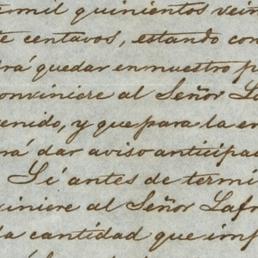 mil quinientos vein
te centavos, estando con
rá quedar en nuestro p
conviniere al Señor La
enido, y que para la en
rá dar aviso anticipad
Si antes de termi
iniere al Señor Lafr
la cantidad que imp